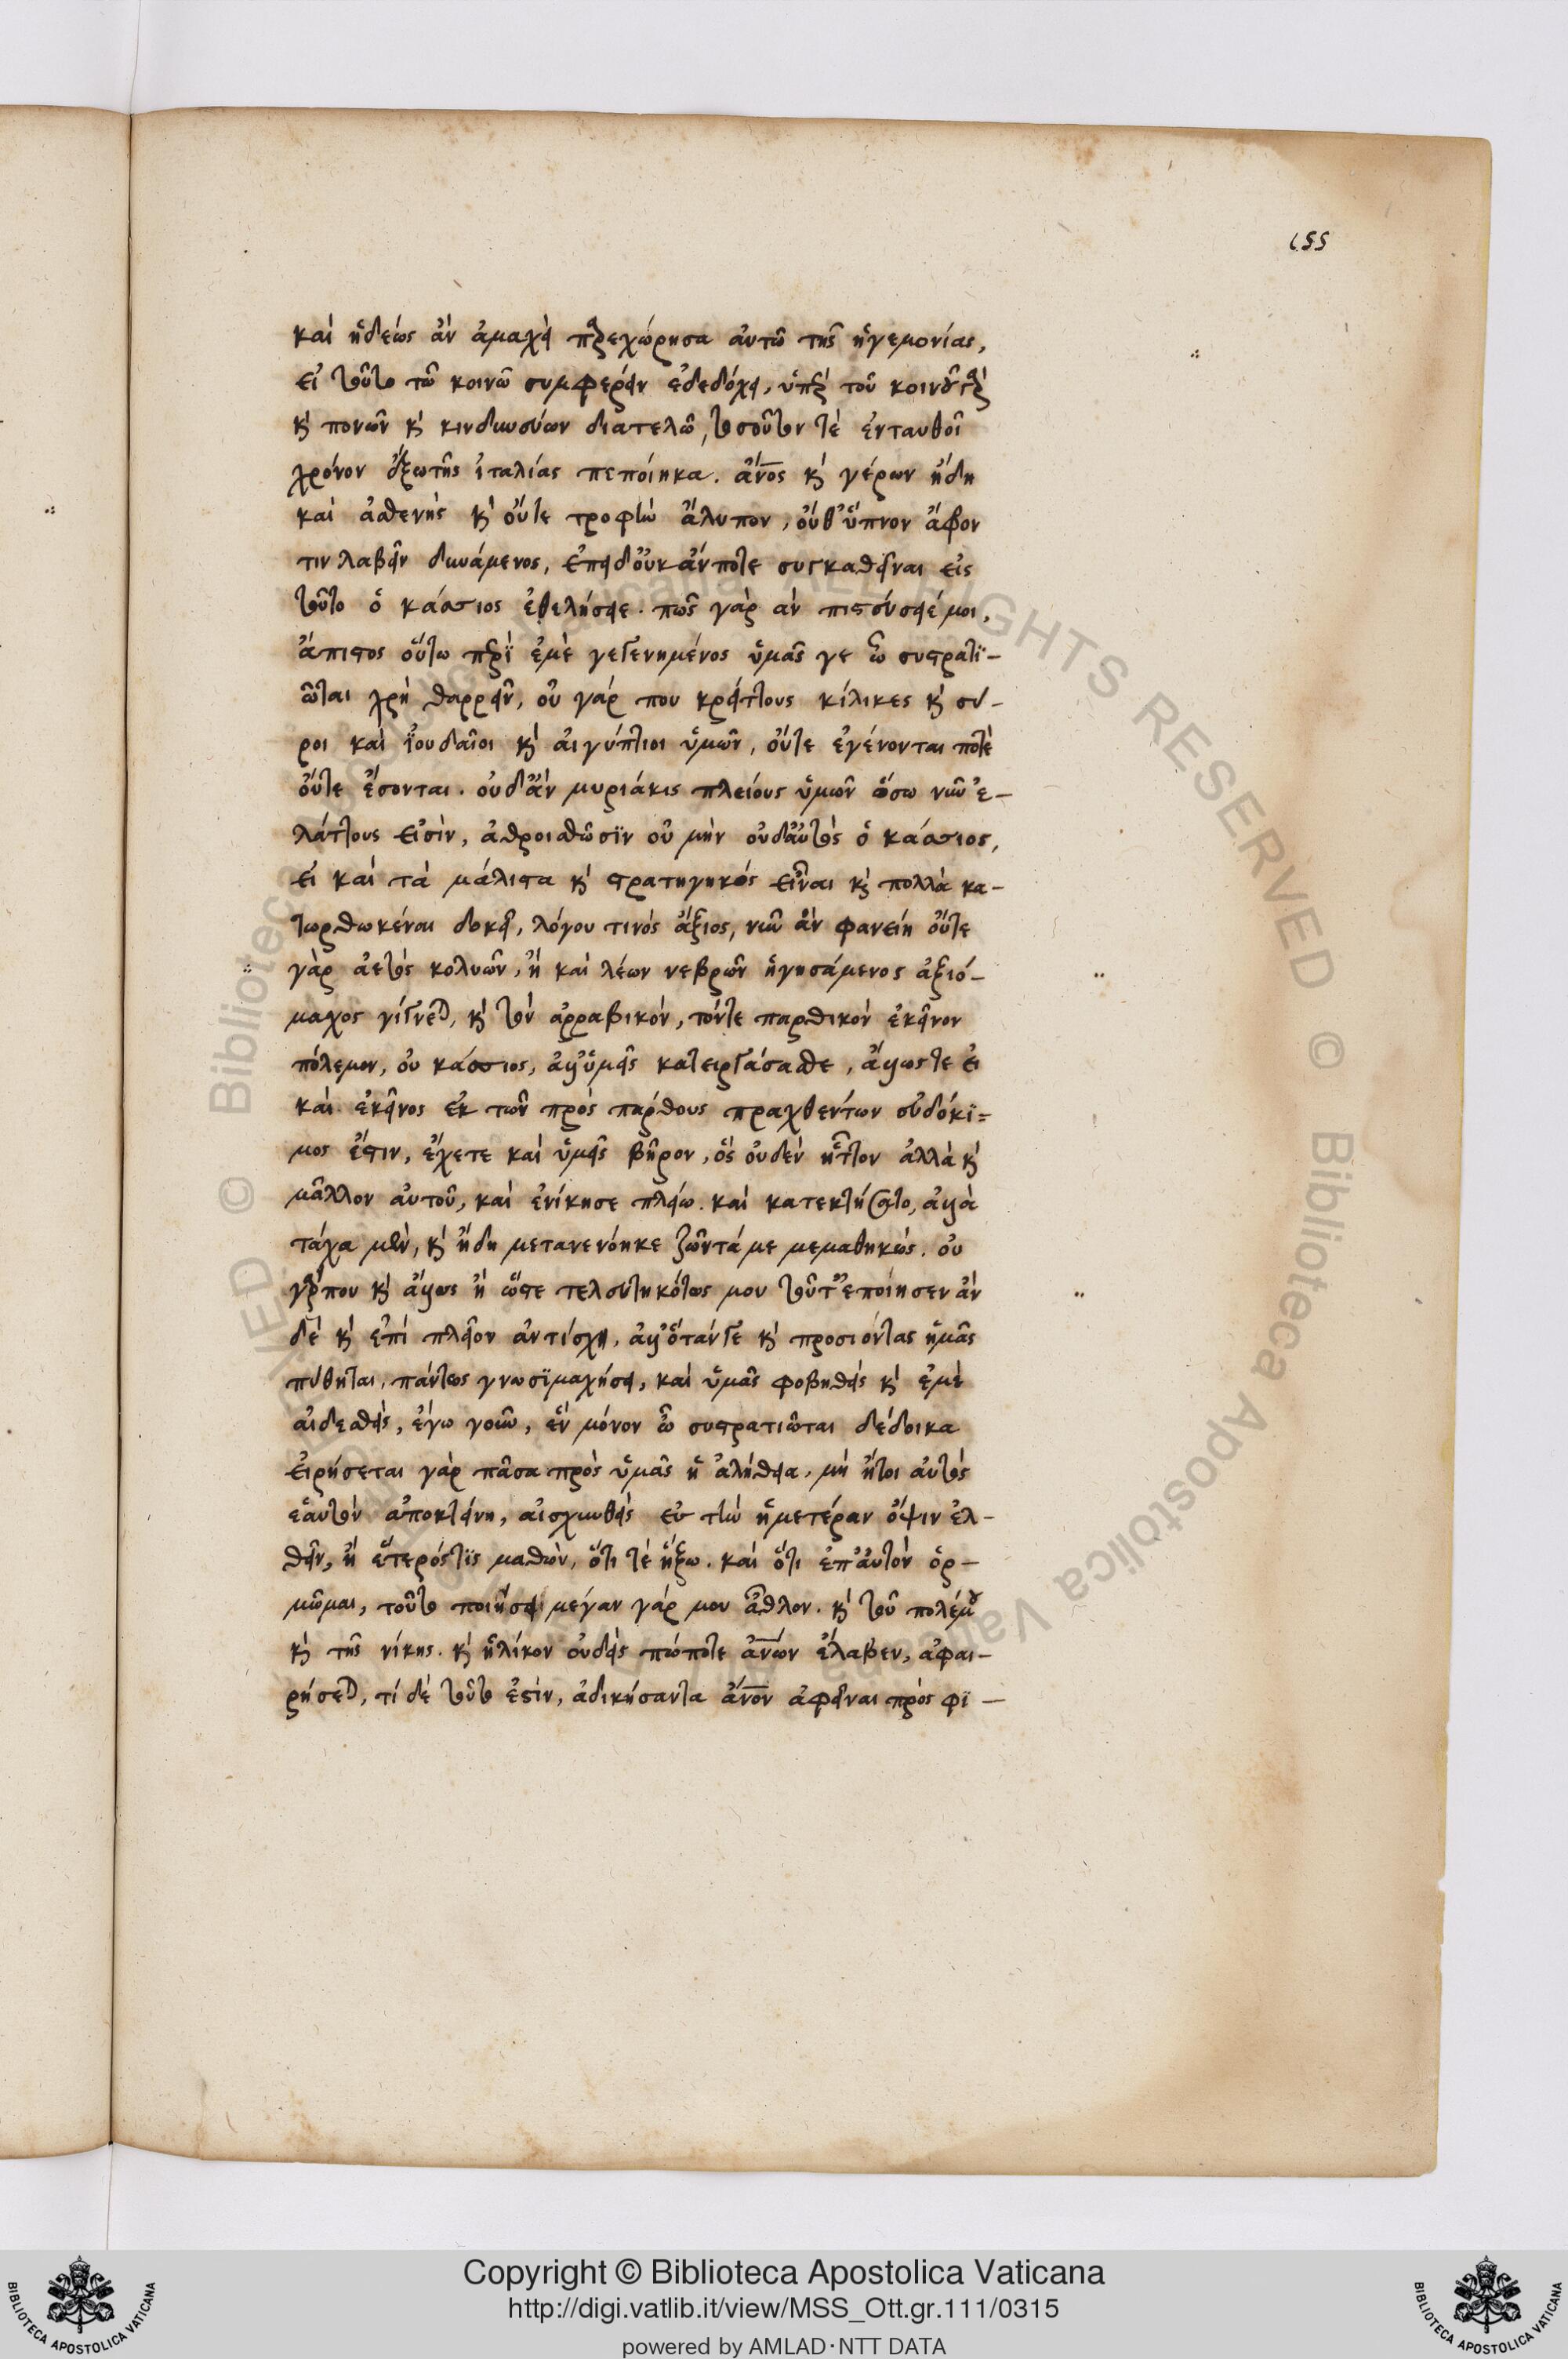 155
καὶ ἡδέως ἂν ἀμαχεὶ παρεχώρησα αὐτῷ τῆς ἡγεμονίας,
εἰ τοῦτο τῷ κοινῷ συμφέρειν ἐδεδόχει, ὑπὲρ τοῦ κοινοῦ γὰρ
κὶ πονῶν κὶ κινδυνεύων διατελῶ, τοσοῦτόν τὲ ἐνταυθοῖ
χρόνον ἔξω τῆς ἰταλίας πεποίηκα. ἄνος κὶ γέρων ἤδη
καὶ ἀσθενὴς κὶ οὔτε τροφὴν ἄλυπον, οὔθ' ὕπνον ἄφον
τιν λαβεῖν δυνάμενος, ἐπεὶ δ' οὐκ ἄν ποτε συγκαθεῖναι εἰς
τοῦτο ὁ κάσσιος ἐθελήσειε. πῶς γὰρ ἀν πιστεύσειέ μοι,
ἄπιστος οὕτω περὶ ἐμὲ γεγενημένος ὑμᾶς γε ὦ συστρατϊ-
ῶται χρὴ θαρρεῖν, οὐ γάρ που κρείττους κίλικες κὶ σύ-
ροι καὶ ἰουδαῖοι κὶ αἰγύπτιοι ὑμῶν, οὔτε ἐγένονται ποτὲ
οὔτε ἔσονται. οὐδ' ἂν μυριάκις πλείους ὑμῶν ὅσω νῦν ἐ-
λάττους εἰσὶν, ἀθροισθῶσϊν οὐ μὴν οὐδ' αὐτὸς ὁ κάσσιος,
εἰ καὶ τὰ μάλιστα κὶ στρατηγηκὸς εἶναι κὶ πολλὰ κα-
τωρθωκέναι δοκεῖ, λόγου τινός ἄξιος, νῦν ἂν φανείη οὔτε
γὰρ ἀετὸς κολυῶν, ἢ καὶ λέων νεβρῶν ἡγησάμενος ἀξιό-
μαχος γίγνεται, κὶ τὸν ἀρραβικὸν, τόντε παρθικὸν ἐκεῖνον
πόλεμον, οὐ κάσσιος, ἀλλ' ὑμεῖς κατειργάσασθε, ἄλλως τε εἰ
καὶ ἐκεῖνος ἐκ τῶν πρὸς πάρθους πραχθέντων εὐδόκϊ=
μος ἔστιν, ἔχετε καὶ ὑμεῖς βῆρον, ὃς οὐδὲν ἧττον ἀλλὰ κὶ
μᾶλλον αὐτοῦ, καὶ ἐνίκησε πλείω. καὶ κατεκτήσατο, ἀλλὰ
τάχα μὲν, κὶ ἤδη μετανενόηκε ζῶντά με μεμαθηκώς. οὐ
γάρ που κὶ ἄλλως ἢ ὥστε τελευτηκότως μου τοῦτ' ἐποίησεν ἀν
δὲ κὶ ἐπὶ πλεῖον ἀντίσχη, ἀλλ' ὅταν γε κὶ προσιόντας ἡμᾶς
πύθηται, πάντως γνωσϊμαχήσει, καὶ ὑμᾶς φοβηθεὶς κὶ ἐμὲ
αἰδεσθεὶς, ἐγω γοῦν, ἓν μόνον ὦ συστρατιῶται δέδοικα
εἰρήσεται γὰρ πᾶσα πρὸς ὑμᾶς ἡ ἀλήθεια, μὴ ἤτοι αὐτὸς
ἑαυτὸν ἀποκτείνη, αἰσχυνθεὶς ἐς τὴν ἡμετέραν ὄψιν ἐλ-
θεῖν, ἢ ἕτερός τϊς μαθὼν, ὅτι τὲ ἥξω. καὶ ὅτι ἐπ' αὐτὸν ὁρ-
μῶμαι, τοῦτο ποιήσει μέγαν γάρ μου ἆθλον. κὶ τοῦ πολέμου
κὶ τῆς νίκης. κὶ ἡλίκον οὐδεὶς πώποτε ἀνών ἔλαβεν, ἀφαι-
ρήσεται, τί δὲ τοῦτο ἐστὶν, ἀδικήσαντα ἄνον ἀφεῖναι πρὸς φϊ-
© Biblioteca Apostolica Vaticana ALL RIGHTS RESERVED © Biblioteca Apostolica Vaticana
Copyright © Biblioteca Apostolica Vaticana
http://digi.vatlib.it/view/MSS_Ott.gr.111/0315
powered by AMLAD·NTT DATA
BIBLIOTECA APOSTOLICA VATICANA
BIBLIOTECA APOSTOLICA VATICANA